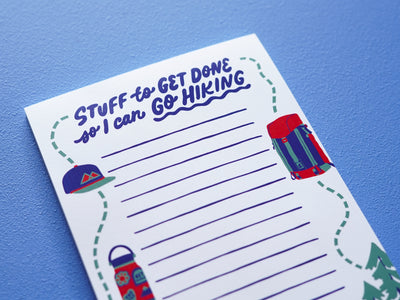 STUFF to GET DONE
so I can GO HIKING